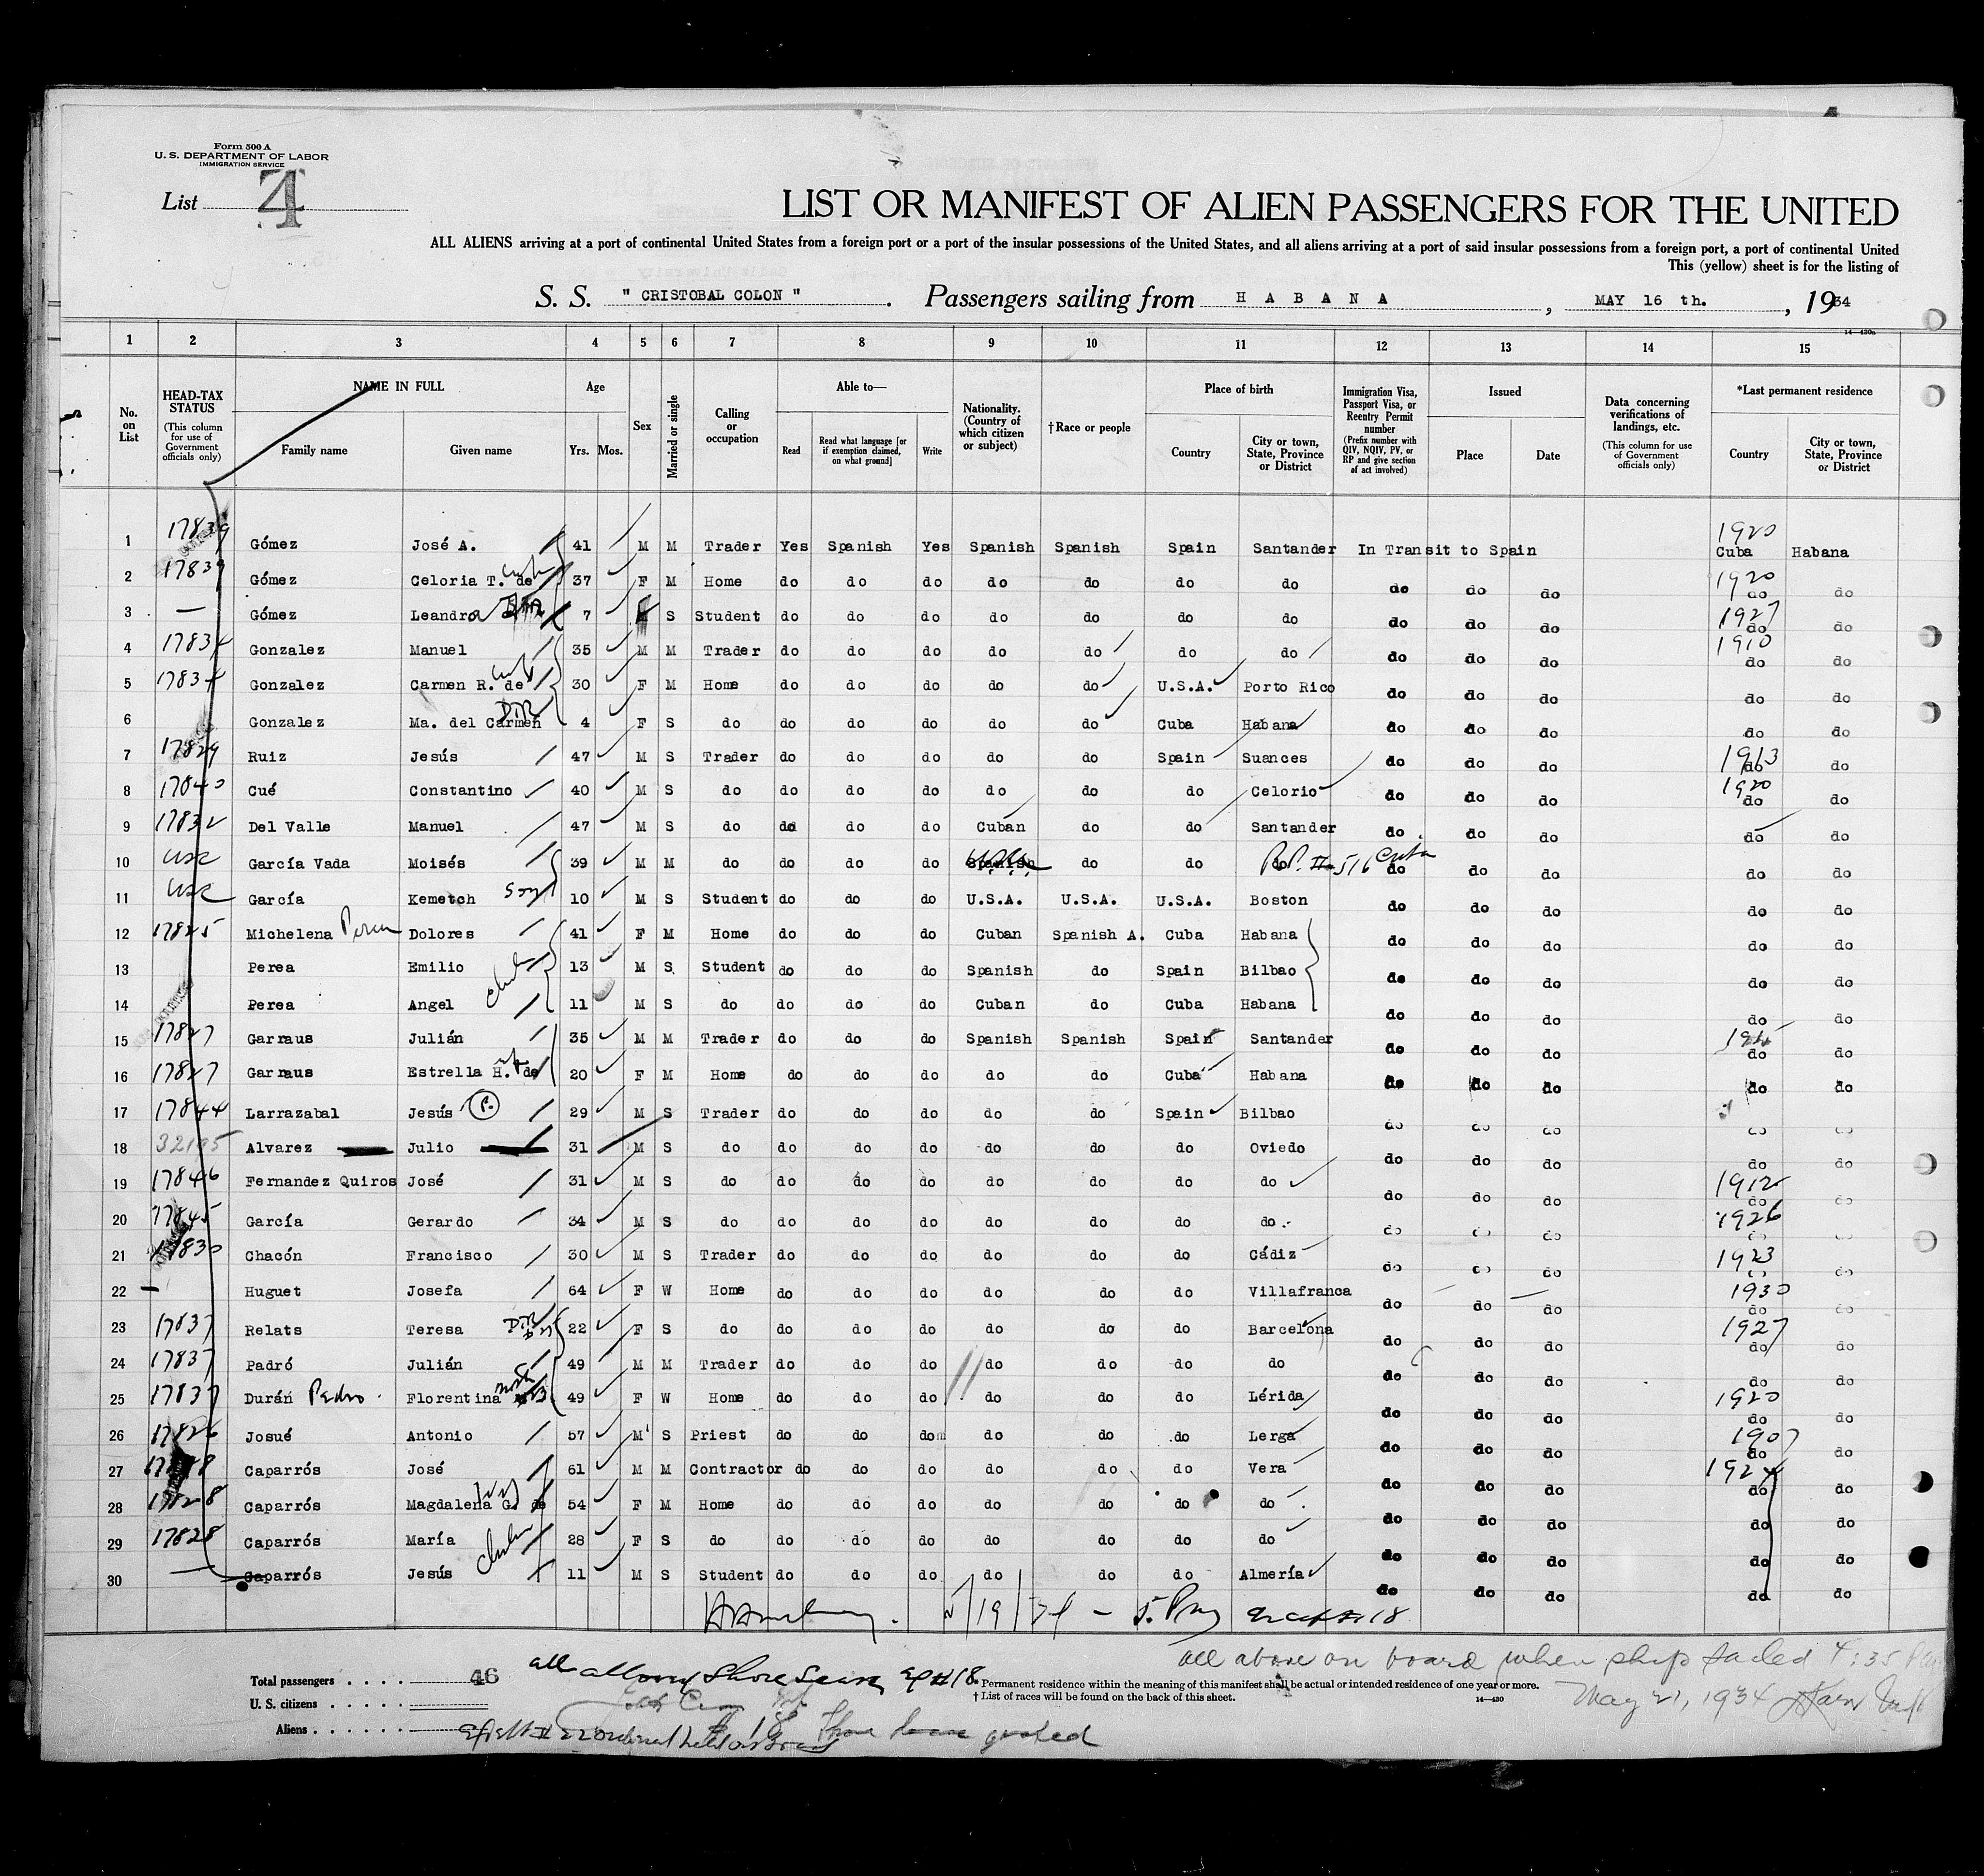 Form 500 A
U. S. DEPARTMENT OF LABOR
IMMIGRATION SERVICE
List 4
LIST OR MANIFEST OF ALIEN PASSENGERS FOR THE UNITED
ALL ALIENS arriving at a port of continental United States from a foreign port or a port of the insular possessions of the United States, and all aliens arriving at a port of said insular possessions from a foreign port, a port of continental United
This (yellow) sheet is for the listing of
S. S. " CRISTOBAL COLON " . Passengers sailing from H A B A N A , MAY 16 th. , 1934
14—430a
1 2 3 4 5 6 7 8 9 10 11 12 13 14 15
No. on List
HEAD-TAX STATUS (This column for use of Government officials only)
NAME IN FULL Family name Given name
Age Yrs. Mos.
Sex
Married or single
Calling or occupation
Able to— Read Read what language [or if exemption claimed, on what ground] Write
Nationality. (Country of which citizen or subject)
†Race or people
Place of birth Country City or town, State, Province or District
Immigration Visa, Passport Visa, or Reentry Permit number (Prefix number with QIV, NQIV, PV, or RP and give section of act involved)
Issued Place Date
Data concerning verifications of landings, etc. (This column for use of Government officials only)
*Last permanent residence Country City or town, State, Province or District
1 17839 Gómez José A. 41 M M Trader Yes Spanish Yes Spanish Spanish Spain Santander In Transit to Spain 1920 Cuba Habana
2 17839 Gómez Celoria T. de 37 F M Home do do do do do do do do do do 1920 do do
3 — Gómez Leandra 7 S Student do do do do do do do do do do 1927 do do
4 17834 Gonzalez Manuel 35 M M Trader do do do do do do do do do do 1910 do do
5 17834 Gonzalez Carmen R. de 30 F M Home do do do do do U.S.A. Porto Rico do do do do do
6 Gonzalez Ma. del Carmen 4 F S do do do do do do Cuba Habana do do do do do
7 17829 Ruiz Jesús 47 M S Trader do do do do do Spain Suances do do do 1913 do do
8 17840 Cué Constantino 40 M S do do do do do do do Celorio do do do 1920 do do
9 17832 Del Valle Manuel 47 M S do do do do Cuban do do Santander do do do do do
10 USC García Vada Moisés 39 M M do do do do Spanish do do do do do do do do
11 USC García Kemetch 10 M S Student do do do U.S.A. U.S.A. U.S.A. Boston do do do do do
12 17825 Michelena Perea Dolores 41 F M Home do do do Cuban Spanish A. Cuba Habana do do do do do
13 Perea Emilio 13 M S Student do do do Spanish do Spain Bilbao do do do do do
14 Perea Angel 11 M S do do do do Cuban do Cuba Habana do do do do do
15 17827 Garraus Julián 35 M M Trader do do do Spanish Spanish Spain Santander do do do do do
16 17827 Garraus Estrella H. de 20 F M Home do do do do do Cuba Habana do do do do do
17 17844 Larrazabal Jesús 29 M S Trader do do do do do Spain Bilbao do do do do do
18 Alvarez Julio 31 M S do do do do do do do Oviedo do do do do do
19 17846 Fernandez Quiros José 31 M S do do do do do do do do do do do 1912 do do
20 17845 García Gerardo 34 M S do do do do do do do do do do do 1926 do do
21 17830 Chacón Francisco 30 M S Trader do do do do do do Cádiz do do do 1923 do do
22 — Huguet Josefa 64 F W Home do do do do do do Villafranca do do do 1930 do do
23 17837 Relats Teresa 22 F S do do do do do do do Barcelona do do do 1927 do do
24 17837 Padró Julián 49 M M Trader do do do do do do do do do do do do
25 17837 Durán Pedro Florentina 49 F W Home do do do do do do Lérida do do do 1920 do do
26 17826 Josué Antonio 57 M S Priest do do do do do do Lerga do do do 1907 do do
27 Caparrós José 61 M M Contractor do do do do do do Vera do do do 1924 do do
28 17828 Caparrós Magdalena G. de 54 F M Home do do do do do do do do do do do do
29 17828 Caparrós María 28 F S do do do do do do do do do do do do do
30 — Caparrós Jesús 11 M S Student do do do do do do Almería do do do do do
5/19/34
Total passengers . . . . 46
U. S. citizens . . . . .
Aliens . . . .
all above on board when ship sailed 4:35
May 21, 1934
* Permanent residence within the meaning of this manifest shall be actual or intended residence of one year or more.
† List of races will be found on the back of this sheet.
14—430